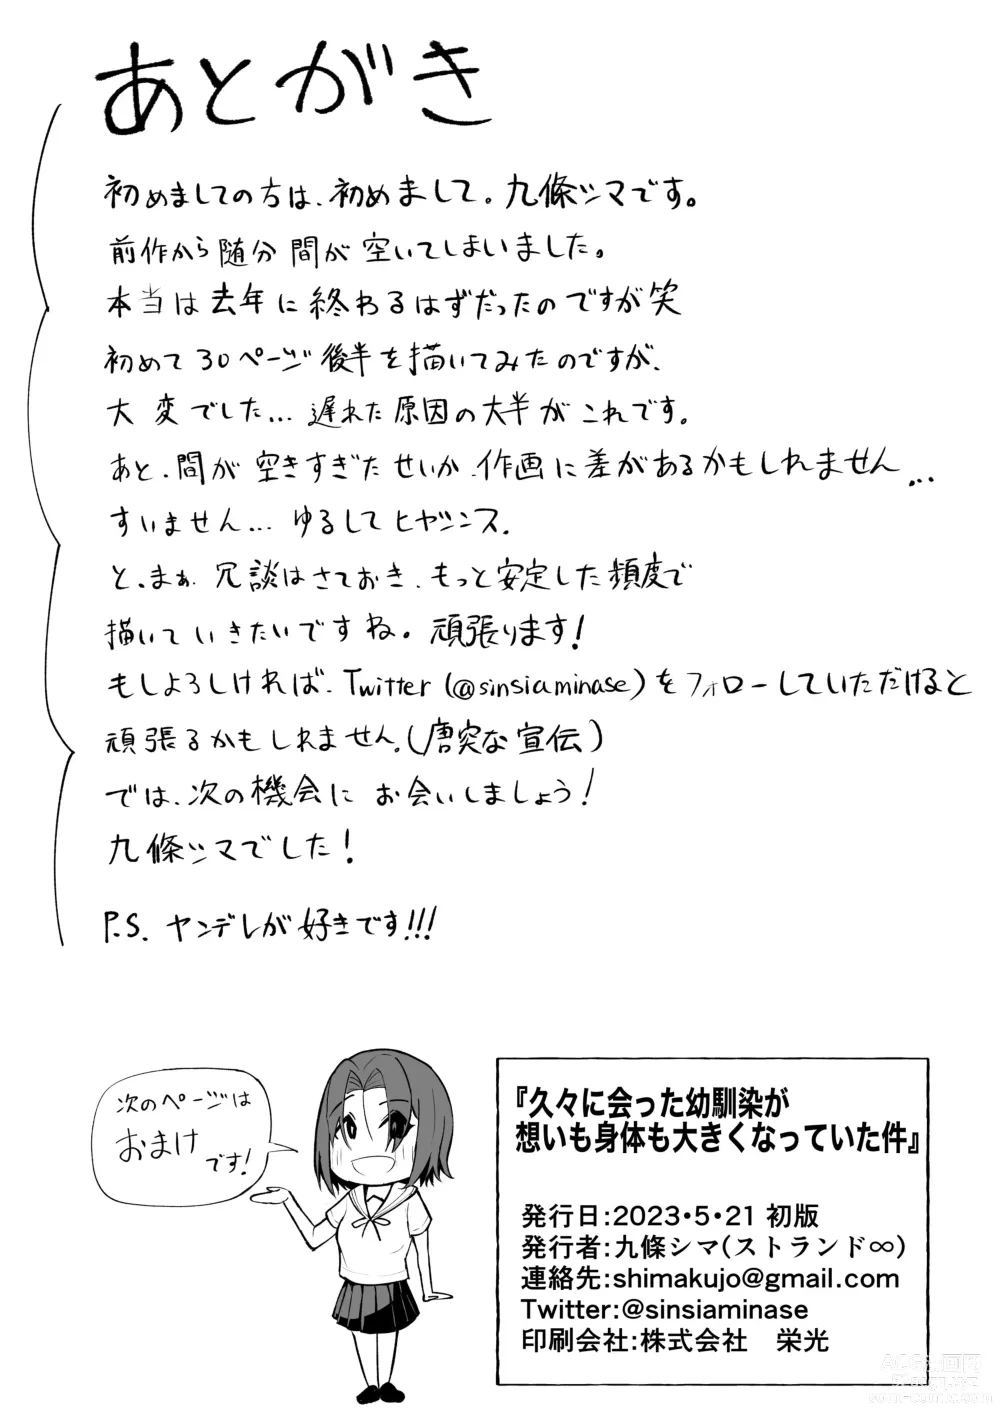 あとがき
初めましての方は、初めまして。九條シマです。
前作から随分間が空いてしまいました。
本当は去年に終わるはずだったのですが笑
初めて30ページ後半を描いてみたのですが、
大変でした...遅れた原因の大半がこれです。
あと、間が空きすぎたせいか、作画に差があるかもしれません...
すいません...ゆるしてヒヤシンス。
と、まぁ、冗談はさておき、もっと安定した頻度で
描いていきたいですね。頑張ります!
もしよろしければ、Twitter(@sinsiaminase)をフォローしていただけると
頑張るかもしれません。(唐突な宣伝)
では、次の機会にお会いしましょう!
九條シマでした!
P.S. ヤンデレが好きです!!!
次のページは
おまけ
です!
『久々に会った幼馴染が
想いも身体も大きくなっていた件』
発行日:2023・5・21 初版
発行者:九條シマ(ストランド∞)
連絡先:shimakujo@gmail.com
Twitter:@sinsiaminase
印刷会社:株式会社 栄光